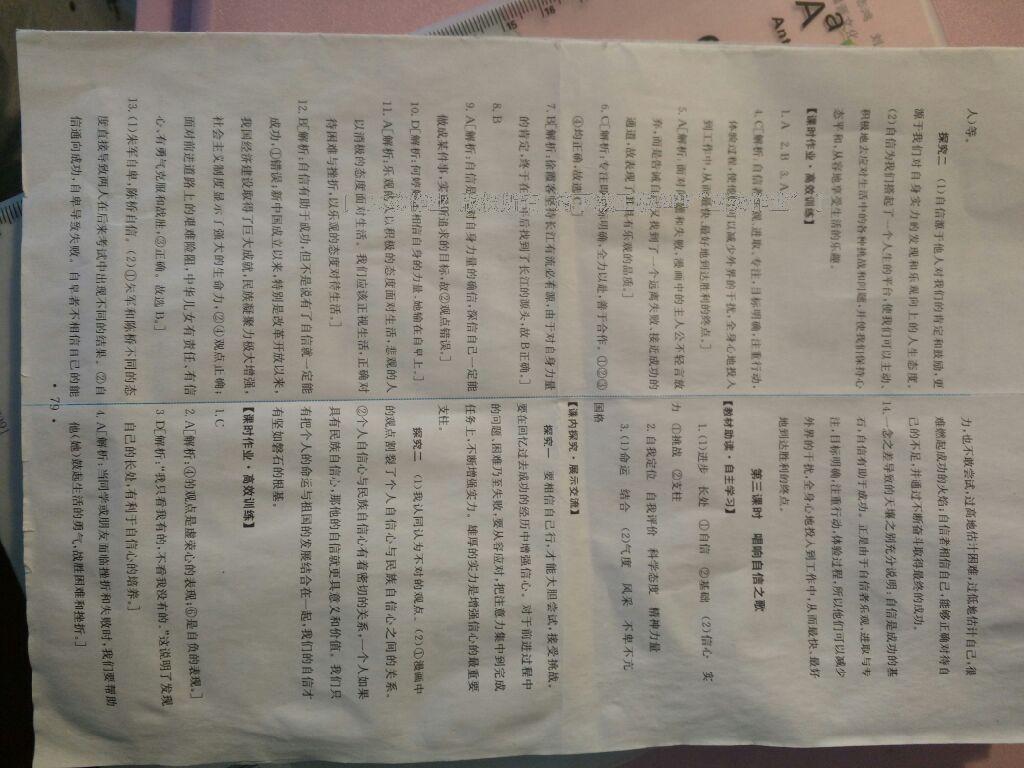 人)等。
探究二 (1)自信源于他人对我们的肯定和鼓励,更
源于我们对自身实力的发现和乐观向上的人生态度。
(2)自信为我们搭起了一个人生的平台,使我们可以主动、
积极地去应对生活中的各种挑战和问题,并使我们保持心
态平和,从容地享受生活的乐趣。
【课时作业·高效训练】
1. A 2. B 3. A
4. C[解析:自信者乐观、进取、专注,目标明确,注重行动、
体验过程,使他们可以减少外界的干扰,全身心地投入
到工作中,从而最快、最好地到达胜利的终点。]
5. A[解析:面对困难和失败,漫画中的主人公不轻言放
弃,而是告诫自己又找到了一个远离失败、接近成功的
通道,故表现了他具有乐观的品质。]
6. C[解析:专注即目标明确,全力以赴,善于合作。①②③
④均正确,故选C。]
7. B[解析:徐霞客坚持长江有流必有源,由于对自身力量
的肯定,终于在 年后找到了长江的源头,故B正确。]
8. B
9. A[解析:自信是人对自身力量的确信,深信自己一定能
做成某件事,实现所追求的目标,故②观点错误。]
10. D[解析:何婷婷不相信自身的力量,她输在自卑上。]
11. A[解析:乐观的人以积极的态度面对生活,悲观的人
以消极的态度面对生活。我们应该正视生活,正确对
待困难与挫折,以乐观的态度对待生活。]
12. B[解析:自信有助于成功,但不是说有了自信就一定能
成功,①错误;新中国成立以来,特别是改革开放以来,
我国经济建设取得了巨大成就,民族凝聚力极大增强,
社会主义制度显示了强大的生命力;②④观点正确;
面对前进道路上的艰难险阻,中华儿女有责任、有信
心、有勇气克服和战胜,③正确。故选B。]
13. (1)朱军自卑,陈桥自信。(2)①朱军和陈桥不同的态
度直接导致两人在后来考试中出现不同的结果。②自
信通向成功,自卑导致失败。自卑者不相信自己的能
力,也不敢尝试,过高地估计困难,过低地估计自己,很
难燃起成功的火焰;自信者相信自己,能够正确对待自
己的不足,并通过不断奋斗取得最终的成功。
14. 一念之差导致的天壤之别充分说明:自信是成功的基
石,自信有助于成功。正是由于自信者乐观、进取与专
注,目标明确,注重行动,体验过程,所以他们可以减少
外界的干扰,全身心地投入到工作中,从而最快、最好
地到达胜利的终点。
第三课时 唱响自信之歌
【教材助读·自主学习】
1. (1)进步 长处 ①自信 ②基础 (2)信心 实
力 ①挑战 ②支柱
2. 自我定位 自我评价 科学态度 精神力量
3. (1)命运 结合 (2)气度 风采 不卑不亢
国格
【课内探究·展示交流】
探究一 要相信自己行,才能大胆尝试,接受挑战。
要在回忆过去成功的经历中增强信心。对于前进过程中
的问题、困难乃至失败,要从容应对,把注意力集中到完成
任务上,不断增强实力。雄厚的实力是增强信心的最重要
支柱。
探究二 (1)我认同认为不对的观点。(2)①漫画中
的观点割裂了个人自信心与民族自信心之间的关系。
②个人自信心与民族自信心有着密切的关系,一个人如果
具有民族自信心,那他的自信就更具意义和价值。我们只
有把个人的命运与祖国的发展结合在一起,我们的自信才
有坚如磐石的根基。
【课时作业·高效训练】
1. C
2. A[解析:④的观点是虚荣心的表现;⑥是自负的表现。]
3. D[解析:“我只看我有的,不看我没有的。”这说明了发现
自己的长处,有利于自信心的培养。]
4. A[解析:当同学或朋友面临挫折和失败时,我们要帮助
他(她)鼓起生活的勇气,战胜困难和挫折。]
· 79 ·
Aa
Ant